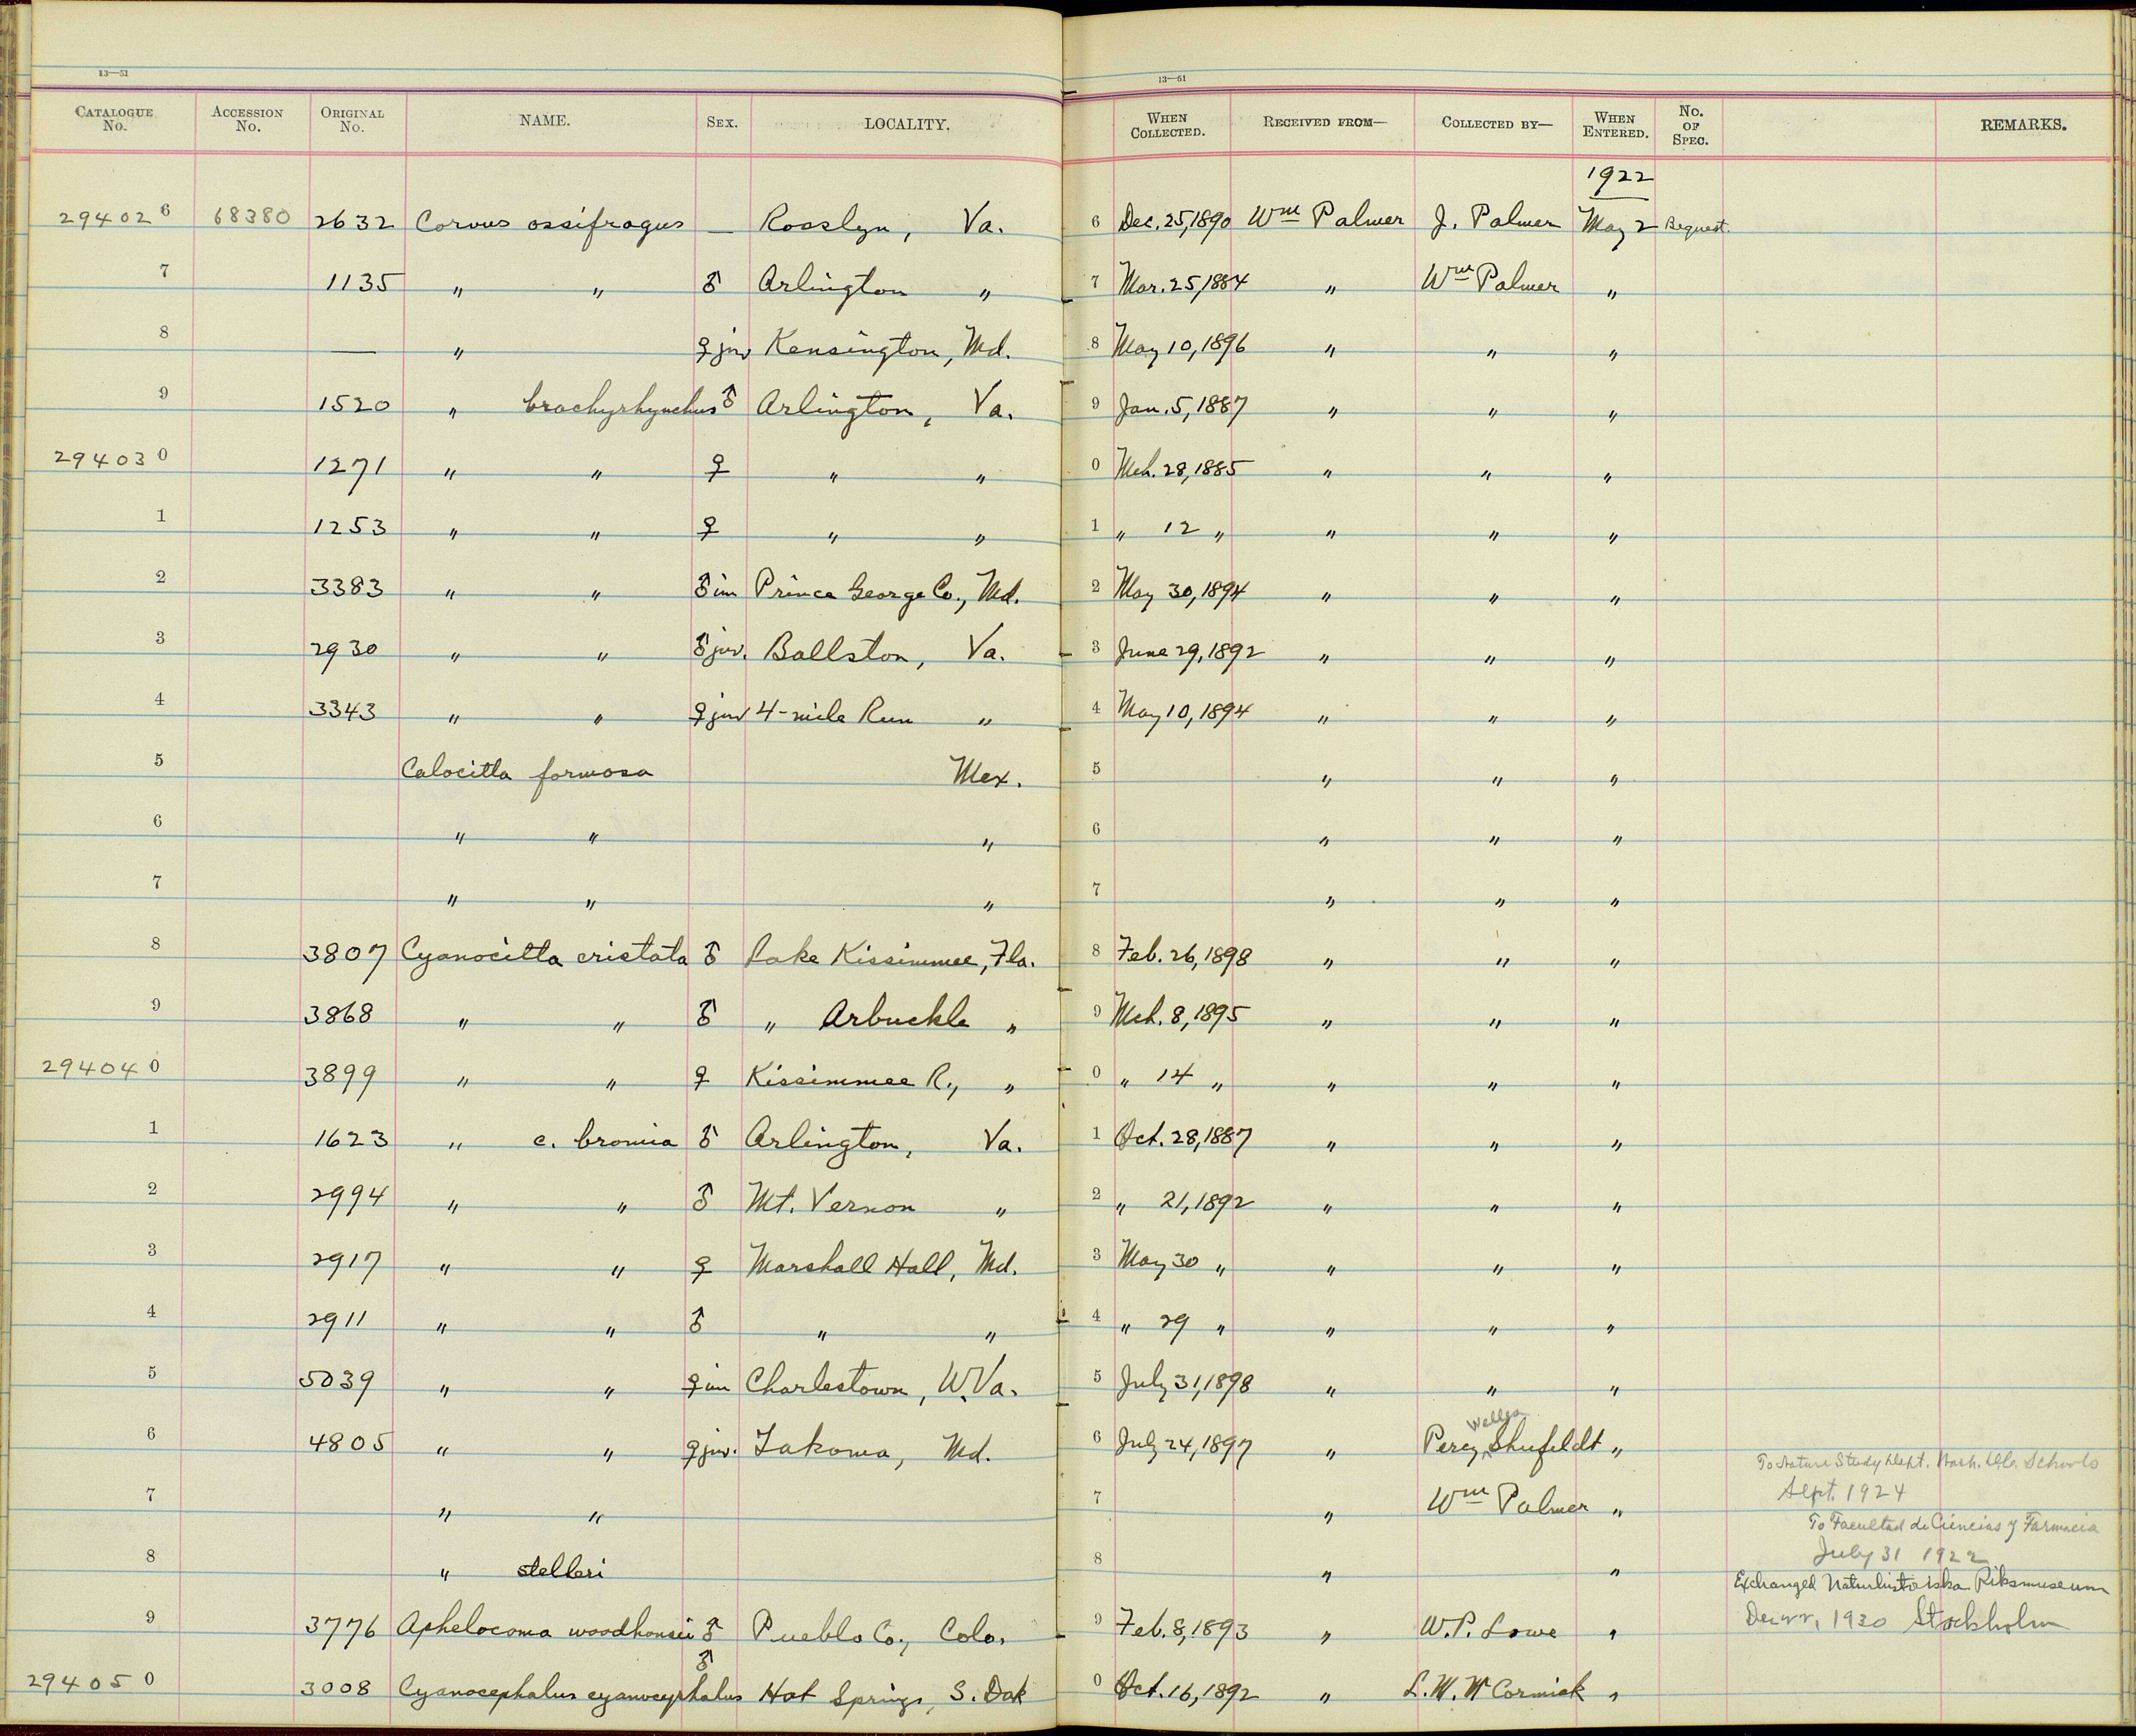 13—51 13—51
CATALOGUE No. ACCESSION No. ORIGINAL No. NAME. SEX. LOCALITY. WHEN COLLECTED. RECEIVED FROM— COLLECTED BY— WHEN ENTERED. No. OF SPEC. REMARKS.
1922
294026 68380 2632 Corvus ossifragus — Rosslyn, Va. 6 Dec. 25, 1890 Wm Palmer J. Palmer May 2 Bequest.
7 1135 " " ♂ Arlington " 7 Mar. 25, 1884 " Wm Palmer "
8 — " ♀ juv Kensington, Md. 8 May 10, 1896 " " "
9 1520 " brachyrhynchus ♂ Arlington, Va. 9 Jan. 5, 1887 " " "
294030 1271 " " ♀ " " 0 Mch. 28, 1885 " " "
1 1253 " " ♀ " " 1 " 12 " " " "
2 3383 " " ♂ im Prince George Co., Md. 2 May 30, 1894 " " "
3 2930 " " ♂ juv. Ballston, Va. 3 June 29, 1892 " " "
4 3343 " " ♀ juv 4-mile Run " 4 May 10, 1894 " " "
5 Calocitta formosa Mex. 5 " " "
6 " " " 6 " " "
7 " " " 7 " " "
8 3807 Cyanocitta cristata ♂ Lake Kissimmee, Fla. 8 Feb. 26, 1898 " " "
9 3868 " " ♂ " Arbuckle " 9 Mch. 8, 1895 " " "
294040 3899 " " ♀ Kissimmee R., " 0 " 14 " " " "
1 1623 " c. bromia ♂ Arlington, Va. 1 Oct. 28, 1887 " " "
2 2994 " " ♂ Mt. Vernon " 2 " 21, 1892 " " "
3 2917 " " ♀ Marshall Hall, Md. 3 May 30 " " " "
4 2911 " " ♂ " " 4 " 29 " " " "
5 5039 " " ♀ im Charlestown, W. Va. 5 July 31, 1898 " " "
6 4805 " " ♀ juv. Takoma, Md. 6 July 24, 1897 " Percy Welles Shufeldt "
To Nature Study Dept. Wash. Schools
7 " " 7 " Wm Palmer " Sept. 1924
To Facultad de Ciencias y Farmacia
8 " stelleri 8 " " July 31 1922
Exchanged Naturhistoriska Riksmuseum
9 3776 Aphelocoma woodhousii ♂ Pueblo Co., Colo. 9 Feb. 8, 1893 " W. P. Lowe " Dec 22, 1930 Stockholm
294050 3008 Cyanocephalus cyanocephalus ♂ Hot Springs, S. Dak 0 Oct. 16, 1892 " L. W. McCormick "